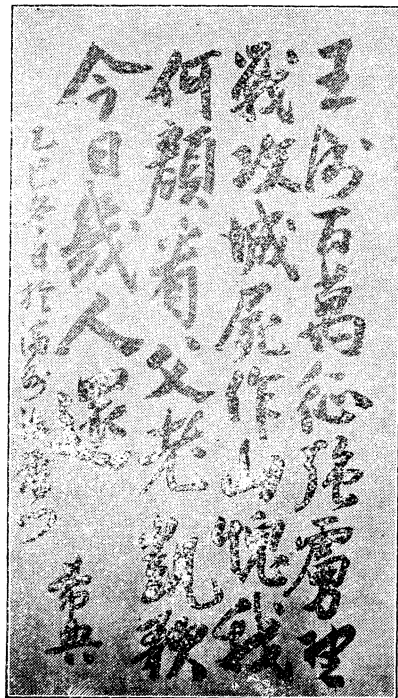 王師百萬征強虜野
戰攻城屍作山愧我
何顔看父老凱歌
今日幾人還
乙巳冬日於満州法庫門
希典